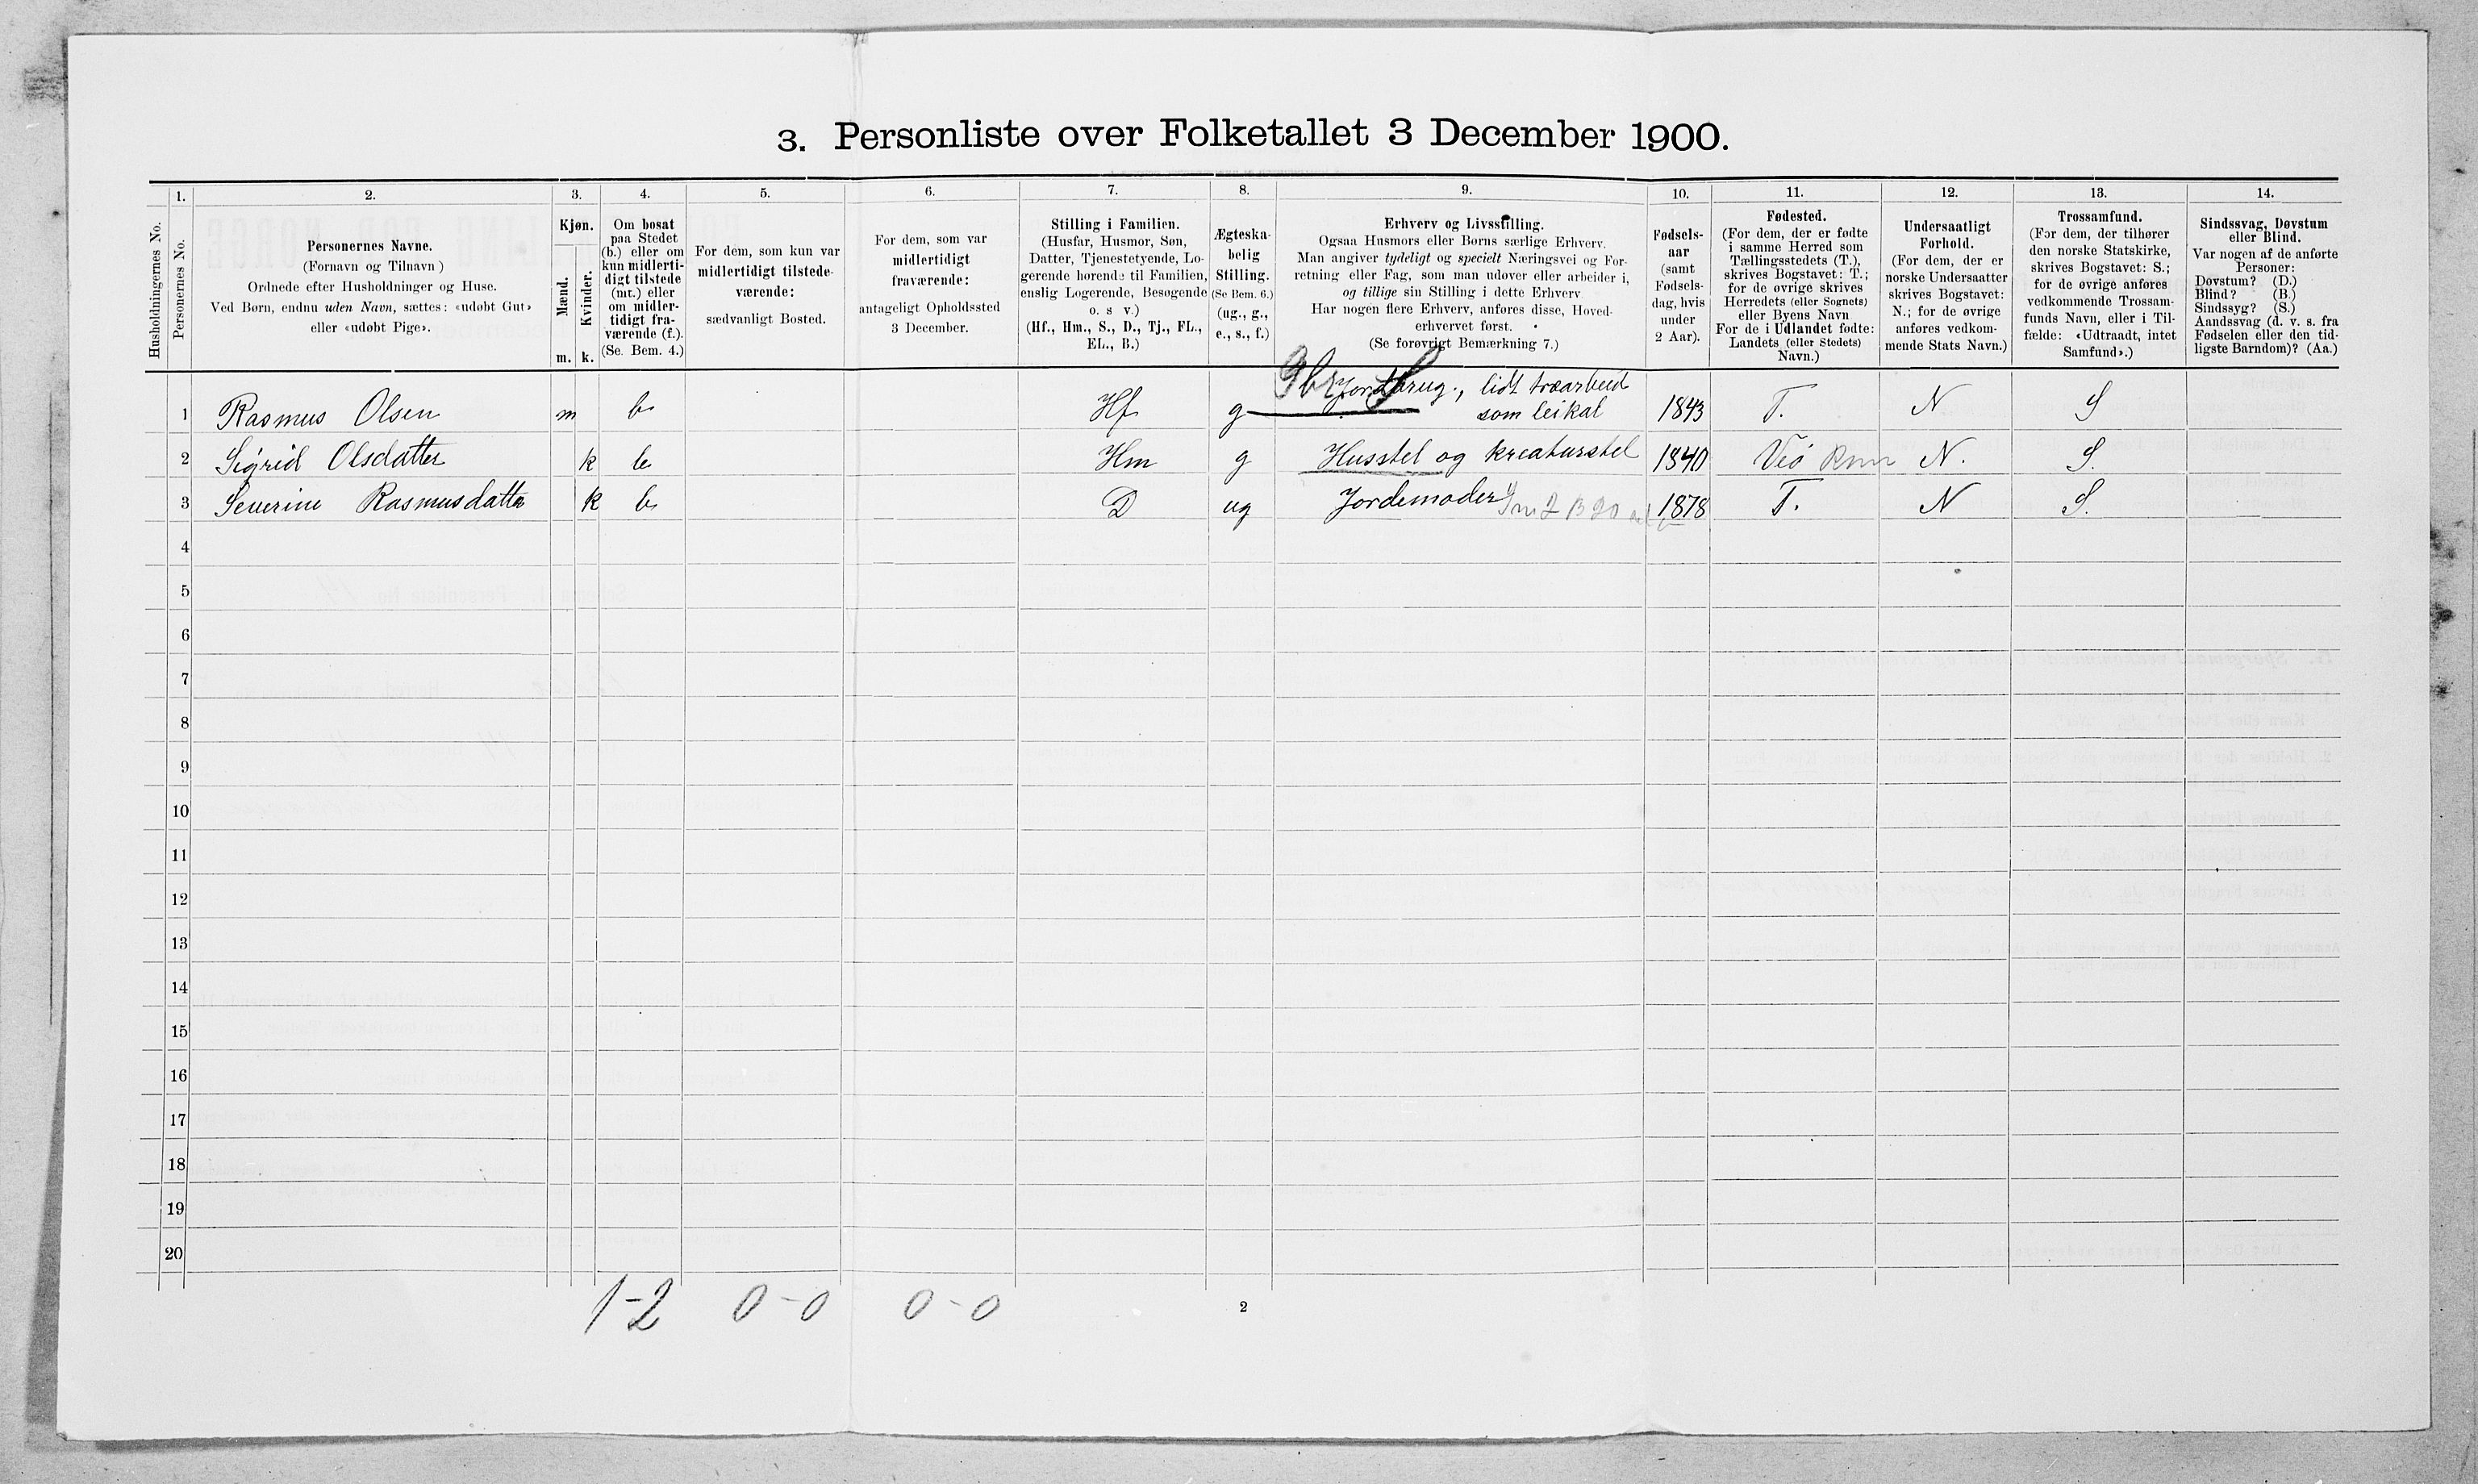 3. Personliste over Folketallet 3 December 1900.
1. 2. 3. 4. 5. 6. 7. 8. 9. 10. 11. 12. 13. 14.
Husholdningernes No.
Personernes No.
Personernes Navne.
(Fornavn og Tilnavn)
Ordnede efter Husholdninger og Huse.
Ved Børn, endnu uden Navn, sættes: «udøbt Gut»
eller «udøbt Pige».
Kjøn.
Mænd.
Kvinder.
m. k.
Om bosat
paa Stedet
(b.) eller om
kun midlerti-
digt tilstede
(mt.) eller
om midler-
tidigt fra-
værende (f.).
(Se. Bem. 4.)
For dem, som kun var
midlertidigt tilstede-
værende:
sædvanligt Bosted.
For dem, som var
midlertidigt
fraværende:
antageligt Opholdssted
3 December.
Stilling i Familien.
(Husfar, Husmor, Søn,
Datter, Tjenestetyende, Lo-
gerende hørende til Familien,
enslig Logerende, Besøgende
o. s v.)
(Hf., Hm., S., D., Tj., FL.,
EL., B.)
Ægteska-
belig
Stilling.
(Se Bem. 6.)
(ug., g.,
e., s., f.)
Erhverv og Livsstilling.
Ogsaa Husmors eller Børns særlige Erhverv.
Man angiver tydeligt og specielt Næringsvei og For-
retning eller Fag, som man udøver eller arbeider i,
og tillige sin Stilling i dette Erhverv
Har nogen flere Erhverv, anføres disse, Hoved-
erhvervet først.
(Se forøvrigt Bemærkning 7.)
Fødsels-
aar
(samt
Fødsels-
dag, hvis
under
2 Aar).
Fødested.
(For dem, der er fødte
i samme Herred som
Tællingsstedets (T.),
skrives Bogstavet: T.;
for de øvrige skrives
Herredets (eller Sognets)
eller Byens Navn
For de i Udlandet fødte:
Landets (eller Stedets)
Navn.)
Undersaatligt
Forhold.
(For dem, der er
norske Undersaatter
skrives Bogstavet:
N.; for de øvrige
anføres vedkom-
mende Stats Navn.)
Trossamfund.
(For dem, der tilhører
den norske Statskirke,
skrives Bogstavet: S.;
for de øvrige anføres
vedkommende Trossam-
funds Navn, eller i Til-
fælde: «Udtraadt, intet
Samfund».)
Sindssvag, Døvstum
eller Blind.
Var nogen af de anførte
Personer:
Døvstum? (D.)
Blind? (B.)
Sindssyg? (S.)
Aandssvag (d. v. s. fra
Fødselen eller den tid-
ligste Barndom)? (Aa.)
1 Rasmus Olsen m b. Hf g Gbr Jordbrug., lidt træarbeid S
som leikal 1843 T. N S
2 Sigrid Olsdatter k b. Hm g Husstel og kreaturstel 1840 Veø N. S.
3 Severine Rasmusdatter k b. D ug Jordemoder 1878 T. N S.
4
5
6
7
8
9
10
11
12
13
14
15
16
17
18
19
20
1-2 0-0 0-0
2